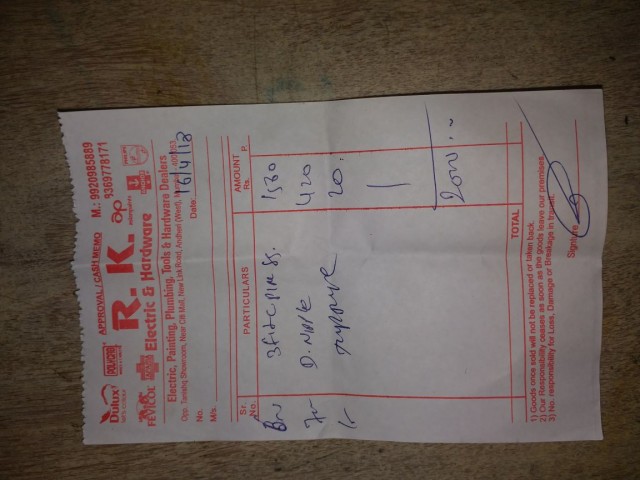 APPROVAL / CASH MEMO M.: 9920985889
9369778171
Dulux
POLYCAB
FEVICOL
R. K.
ap
Electric & Hardware
Electric, Painting, Plumbing, Tools & Hardware Dealers
Opp. Tanishq Showroom, Near Citi Mall, New Link Road, Andheri (West),
No. Date: 16/4/18
M/s.
Sr. No. PARTICULARS AMOUNT
Rs. P.
1530
D. Nipple 420
20.
2000
TOTAL
1) Goods once sold will not be replaced or taken back.
2) Our Responsibility ceases as soon as the goods leave our premises.
3) No. responsibility for Loss, Damage or Breakage in transit.
Signture